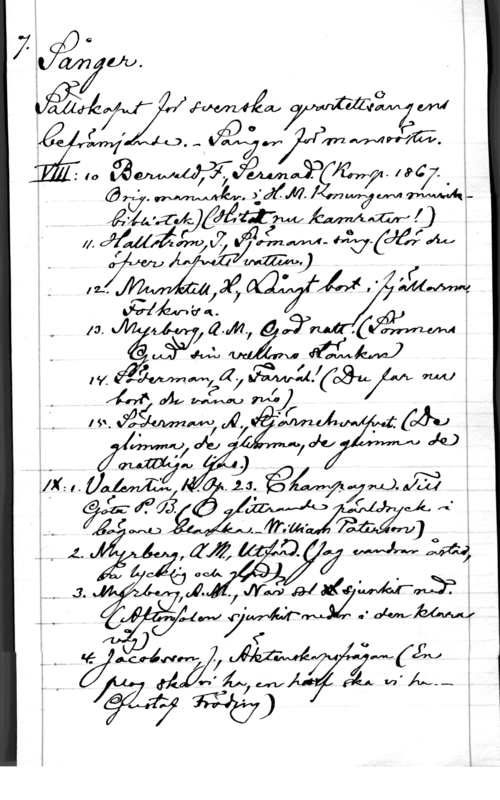 7. Sånger.
Sällskapet för svenska qvartettsångens
befrämjande. - Sånger för mansröster.
VIII: 10 Berwald, F, Serenad. (Komp. 1867.
Orig. manuskr. i H. M. Konungens musik-
bibliotek) (Hitåt nu kamrater!)
11. Hallström, I, Sjömans-sång. (Hör du
öfver hafvets vatten.)
12. Munktell, H, Långt bort i fjällarne,
Folkvisa.
13. Myrberg, A. M., God natt! (Sömmens
Gud sin vallmo stänker)
14. Söderman, A., Farväl! (Du far nu
bort, du våna mö)
15. Söderman, A., Stjärnehvalfvet. (De
glimma, de glimma, de glimma de
nattliga ljus.)
IX: 1. Valentin, K. Op. 23. Champagne. Till
Göta P. B. (O glittrande pärldryck i
bägare blanka - William Paterson)
2. Myrberg, A M, Utfärd. (Jag vandrar åstad,
så lycklig och glad)
3. Myrberg, A. M., När sol sjunkit ned.
(Aftonsolen sjunkit neder i den klara
våg)
4. Jacobsson, J., Äktenskapsfrågan (En
plog ska vi ha, en harf ska vi ha. -
Gustaf Fröding)